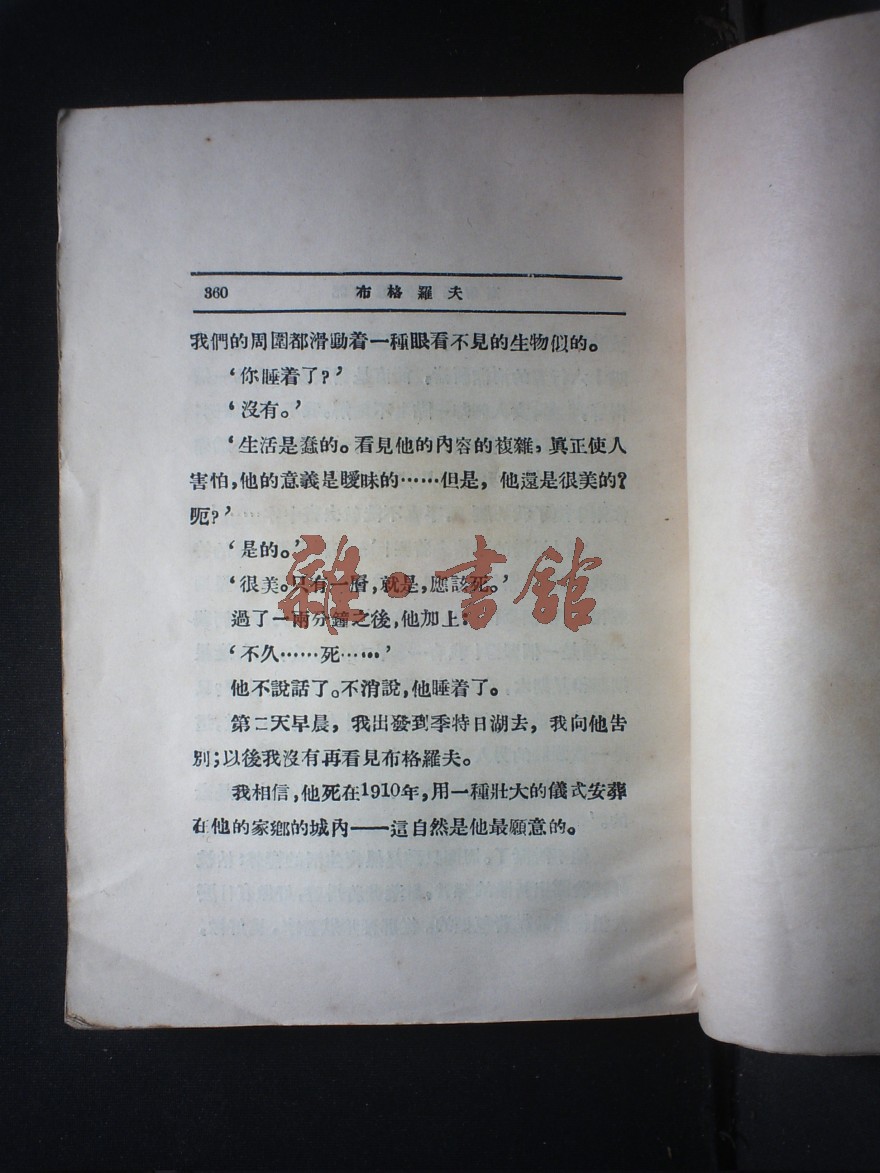 360 布格羅夫
我們的周圍都滑動着一種眼看不見的生物似的。
‘你睡着了?’
‘沒有。’
‘生活是蠢的。看見他的內容的複雜，眞正使人
害怕，他的意義是曖昧的⋯⋯但是，他還是很美的?
呃?’
‘是的。’
‘很美。只有一層，就是，應該死。’
過了一兩分鐘之後，他加上：
‘不久⋯⋯死⋯⋯’
他不說話了。不消說，他睡着了。
第二天早晨，我出發到季特日湖去，我向他告
別；以後我沒有再看見布格羅夫。
我相信，他死在1910年，用一種壯大的儀式安葬
在他的家鄉的城內——這自然是他最願意的。
雜·書館